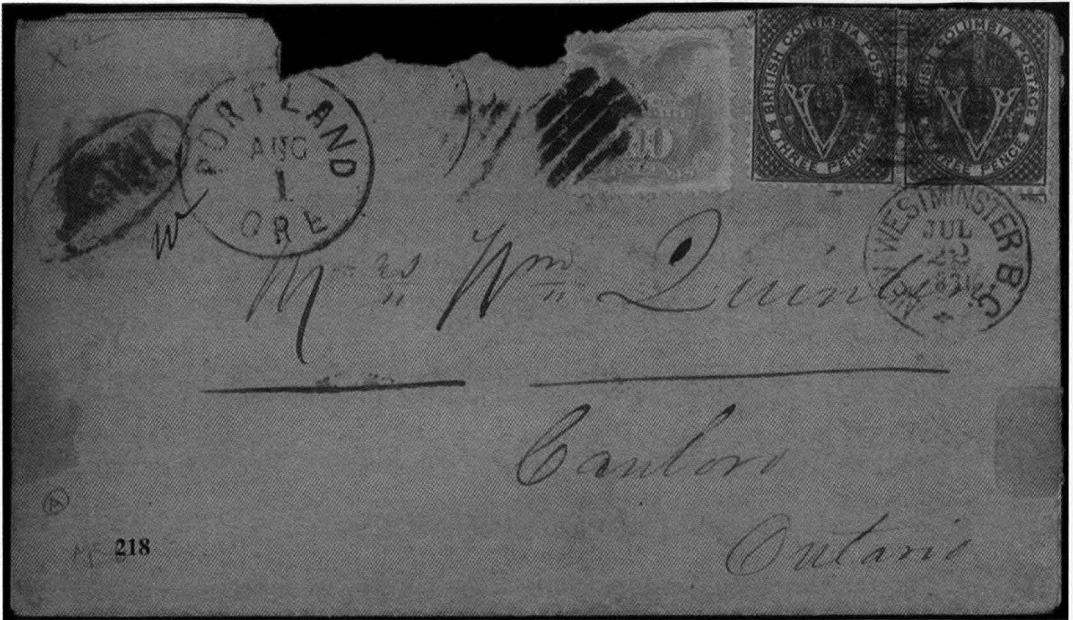 PORTLAND
AUG
1
ORE
10
BRITISH COLUMBIA POSTAGE
THREE PENCE
BRITISH COLUMBIA POSTAGE
THREE PENCE
NEW WESTMINSTER B.C.
JUL
22
Mrs Wm
Canboro
Ontario
218